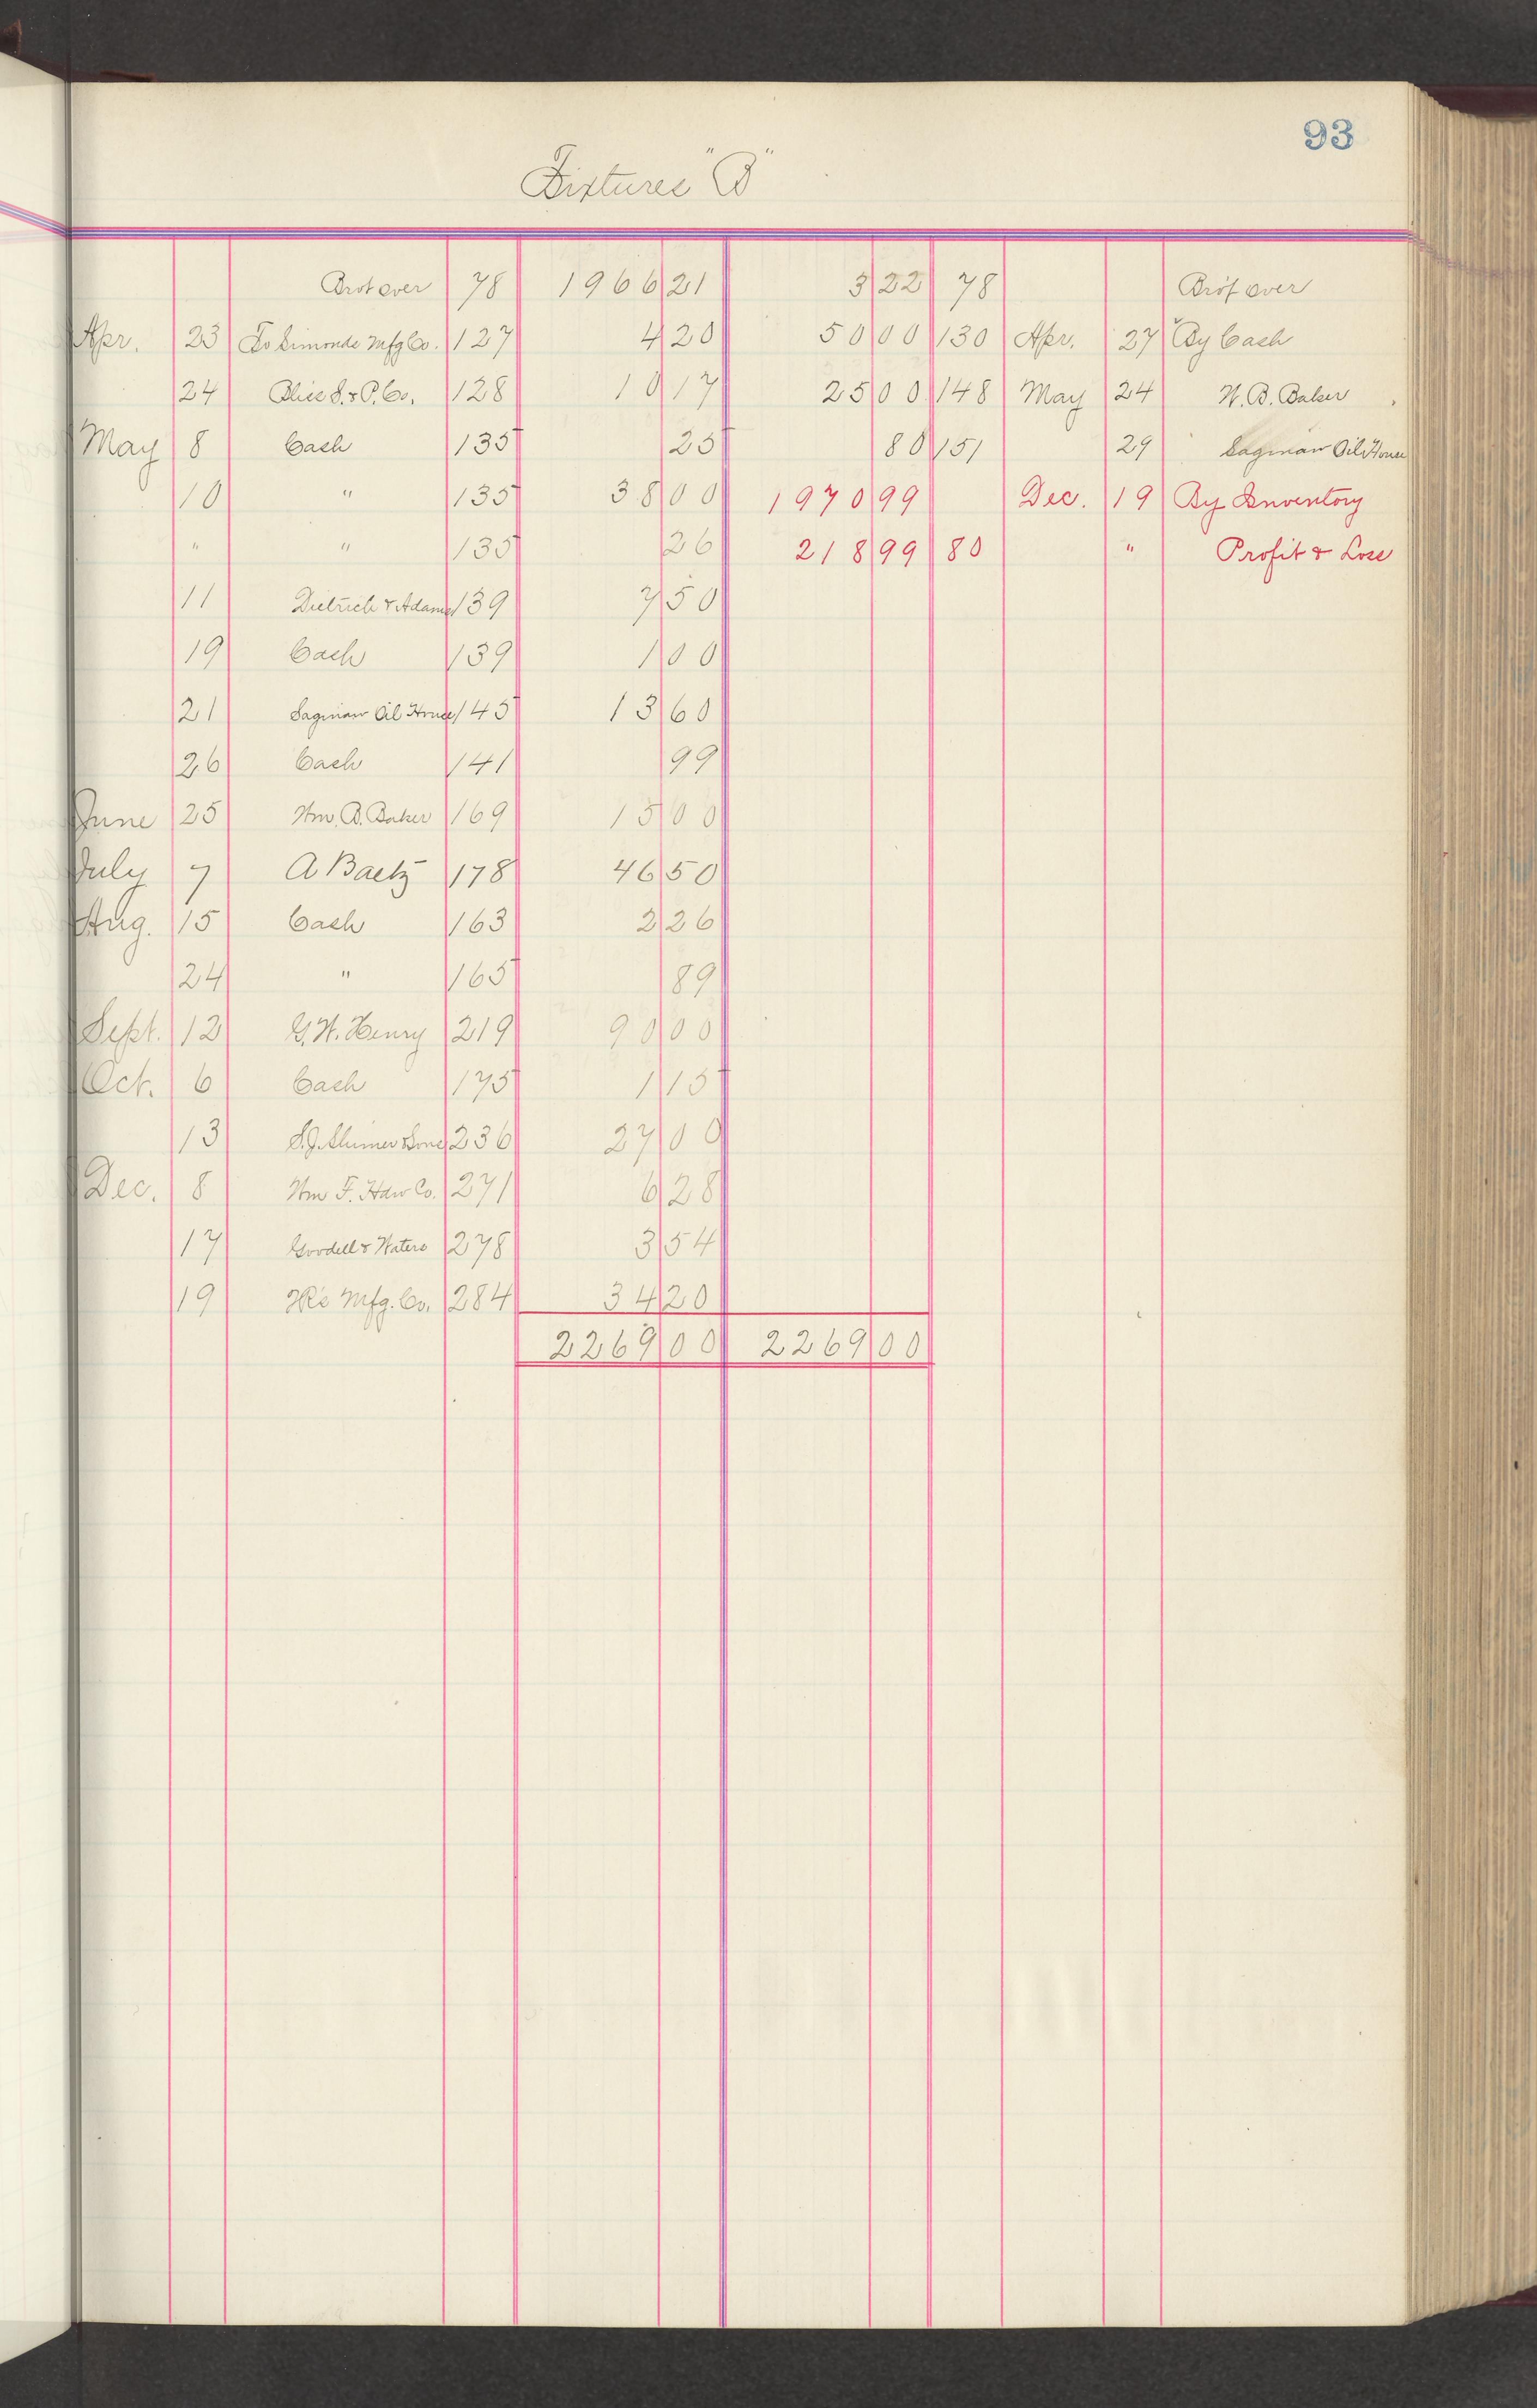 93
Fixtures "B"
Brot over 78 1966 21 3 22 78 Brot over
Apr. 23 To Simonds Mfg Co. 127 4 20 50 00 130 Apr. 27 By Cash
24 Bliss S. & P. Co. 128 10 17 25 00 148 May 24 W. B. Baker
May 8 Cash 135 25 80 151 29 Saginaw Oil House
10 " 135 38 00 1970 99 Dec. 19 By Inventory
" " 135 26 218 99 80 " Profit & Loss
11 Dietrich & Adams 139 7 50
19 Cash 139 1 00
21 Saginaw Oil House 145 13 60
26 Cash 141 99
June 25 Wm. B. Baker 169 15 00
July 7 A Baetz 178 46 50
Aug. 15 Cash 163 2 26
24 " 165 89
Sept. 12 G. W. Henry 219 90 00
Oct. 6 Cash 175 1 15
13 236 27 00
Dec. 8 Wm F. Co. 271 6 28
17 Goodell & Waters 278 3 54
19 Mfg. Co. 284 34 20
2269 00 2269 00